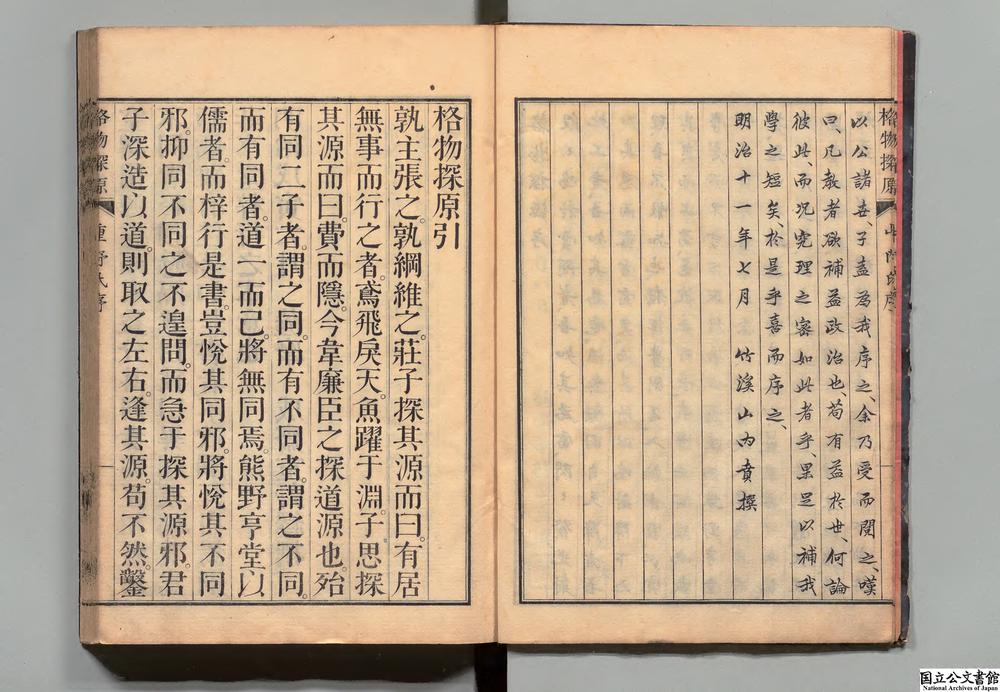 以公諸世、子盍為我序之、余乃受而閱之、嘆
曰、凡教者欲補益政治也、苟有益於世、何論
彼此、而况究理之密如此者乎、果足以補我
學之短矣、於是乎喜而序之、
明治十一年七月 竹溪山内賁撰
格物探原
格物探原引
孰主張之。孰綱維之。莊子探其源而曰。有居
無事而行之者。鳶飛戾天。魚躍于淵。子思探
其源而曰。費而隱。今韋廉臣之探道源也。殆
有同二子者。謂之同。而有不同者。謂之不同。
而有同者。道一而已。將無同焉。熊野亨堂以
儒者。而梓行是書。豈悅其同邪。將悅其不同
邪。抑同不同之不遑問。而急于探其源邪。君
子深造以道。則取之左右。逢其源。苟不然。鑿
格物探原 重野氏序
国立公文書館
National Archives of Japan